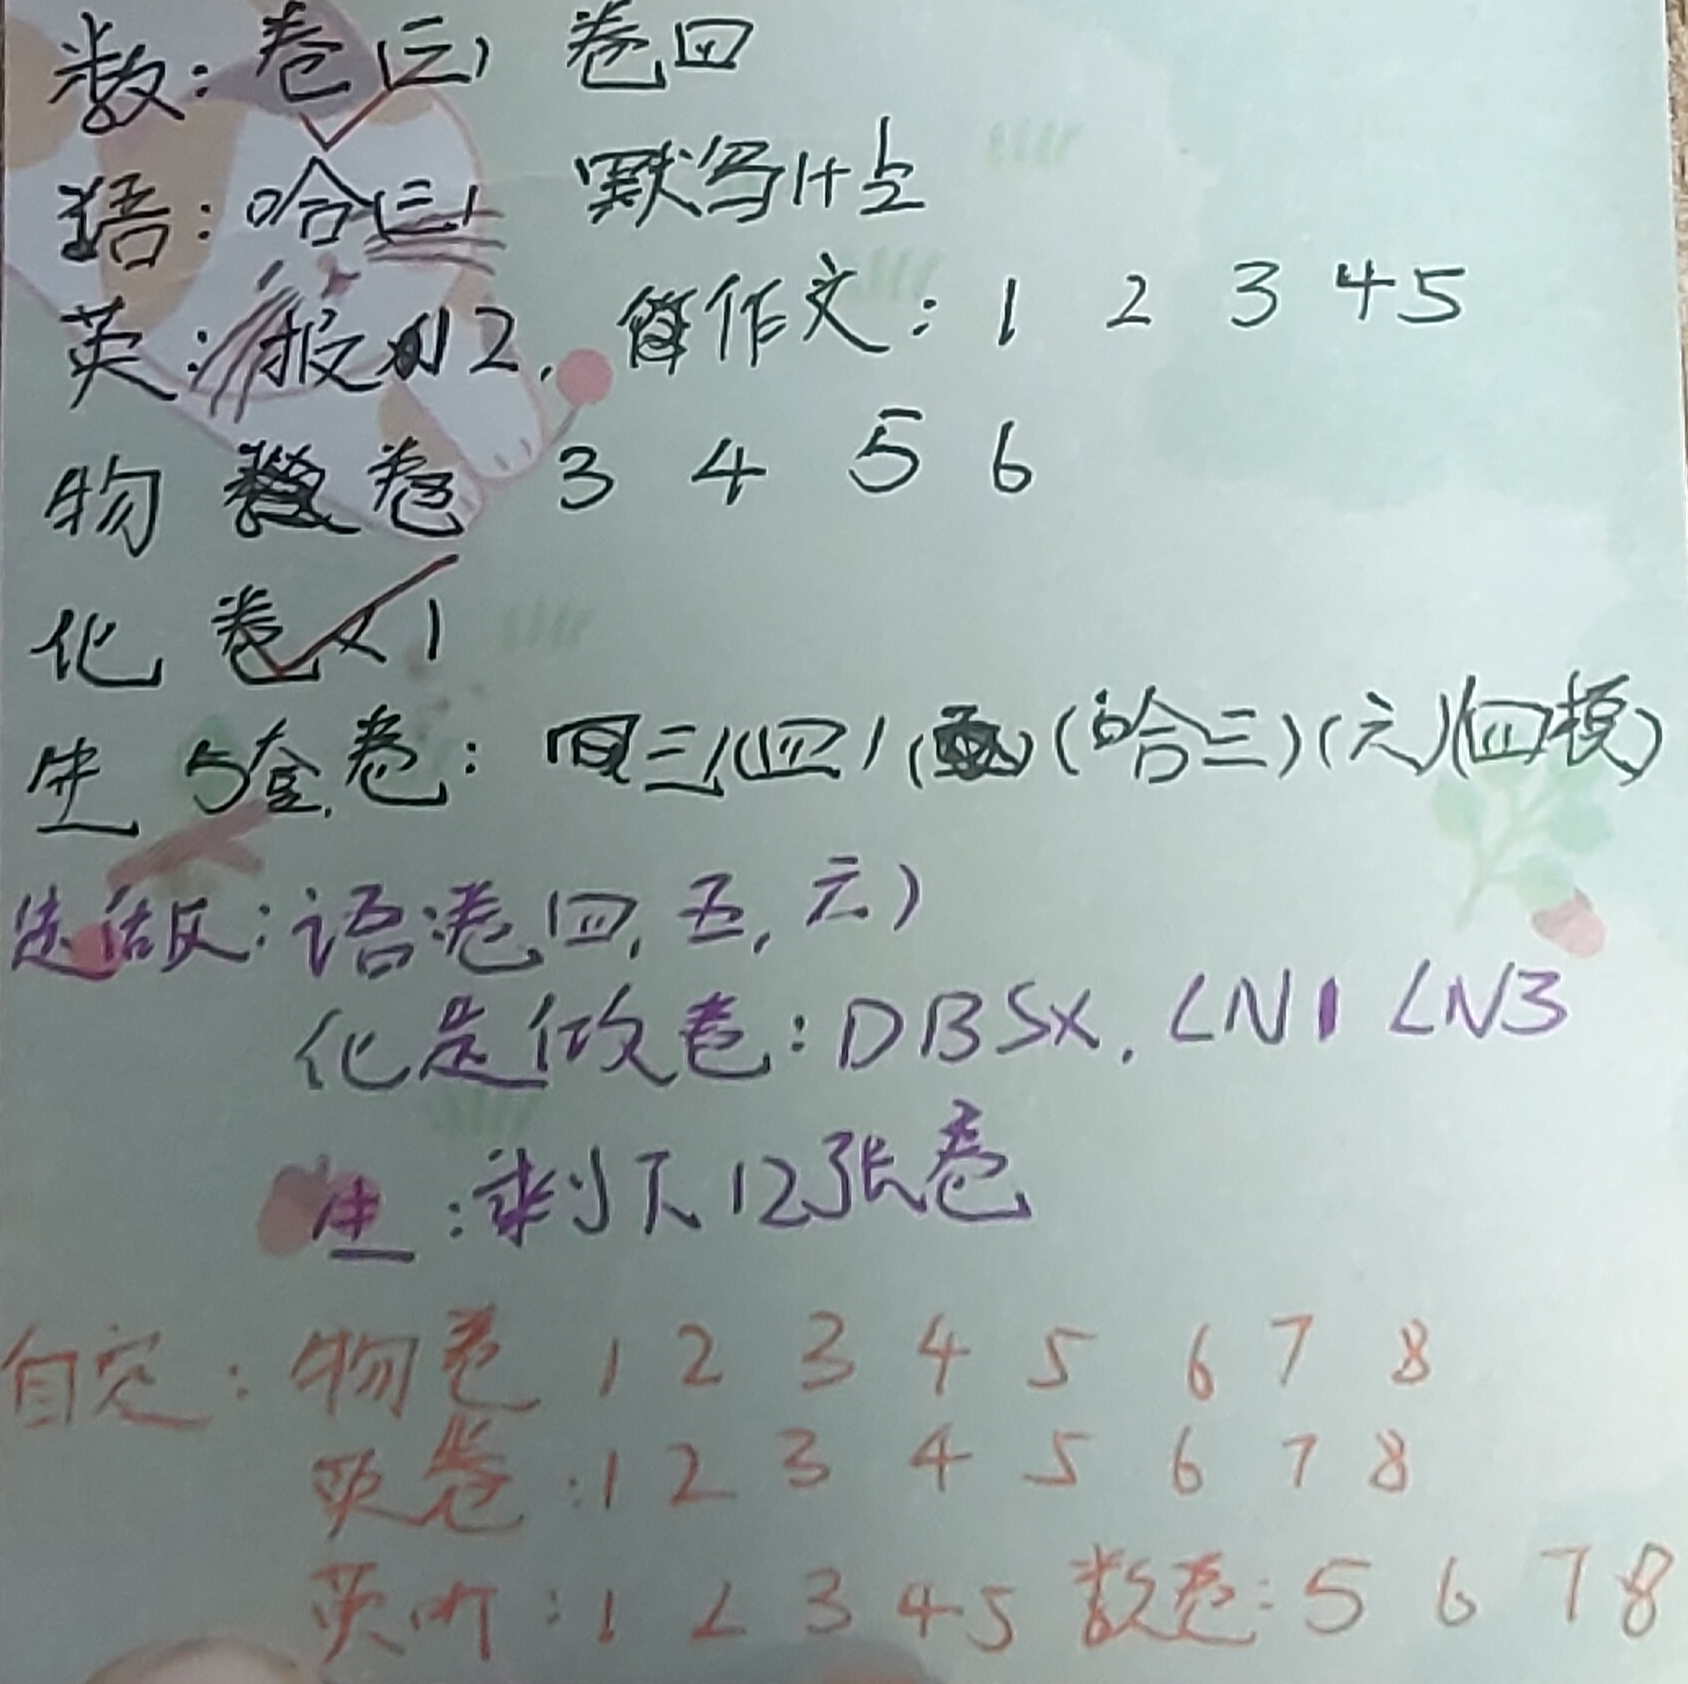 数：卷(三) 卷四
语：哈(三) 默写1+1/2
英：报纸12，作文：1 2 3 4 5
物 卷 3 4 5 6
化 卷×1
生 5套卷：(三)(四)(哈三)(六)(四模)
选做：语卷四，五，六)
化选做卷：DBSX．LN1 LN3
生：剩下12张卷
自定：物卷 1 2 3 4 5 6 7 8
英卷：1 2 3 4 5 6 7 8
英听：1 2 3 4 5 数卷：5 6 7 8